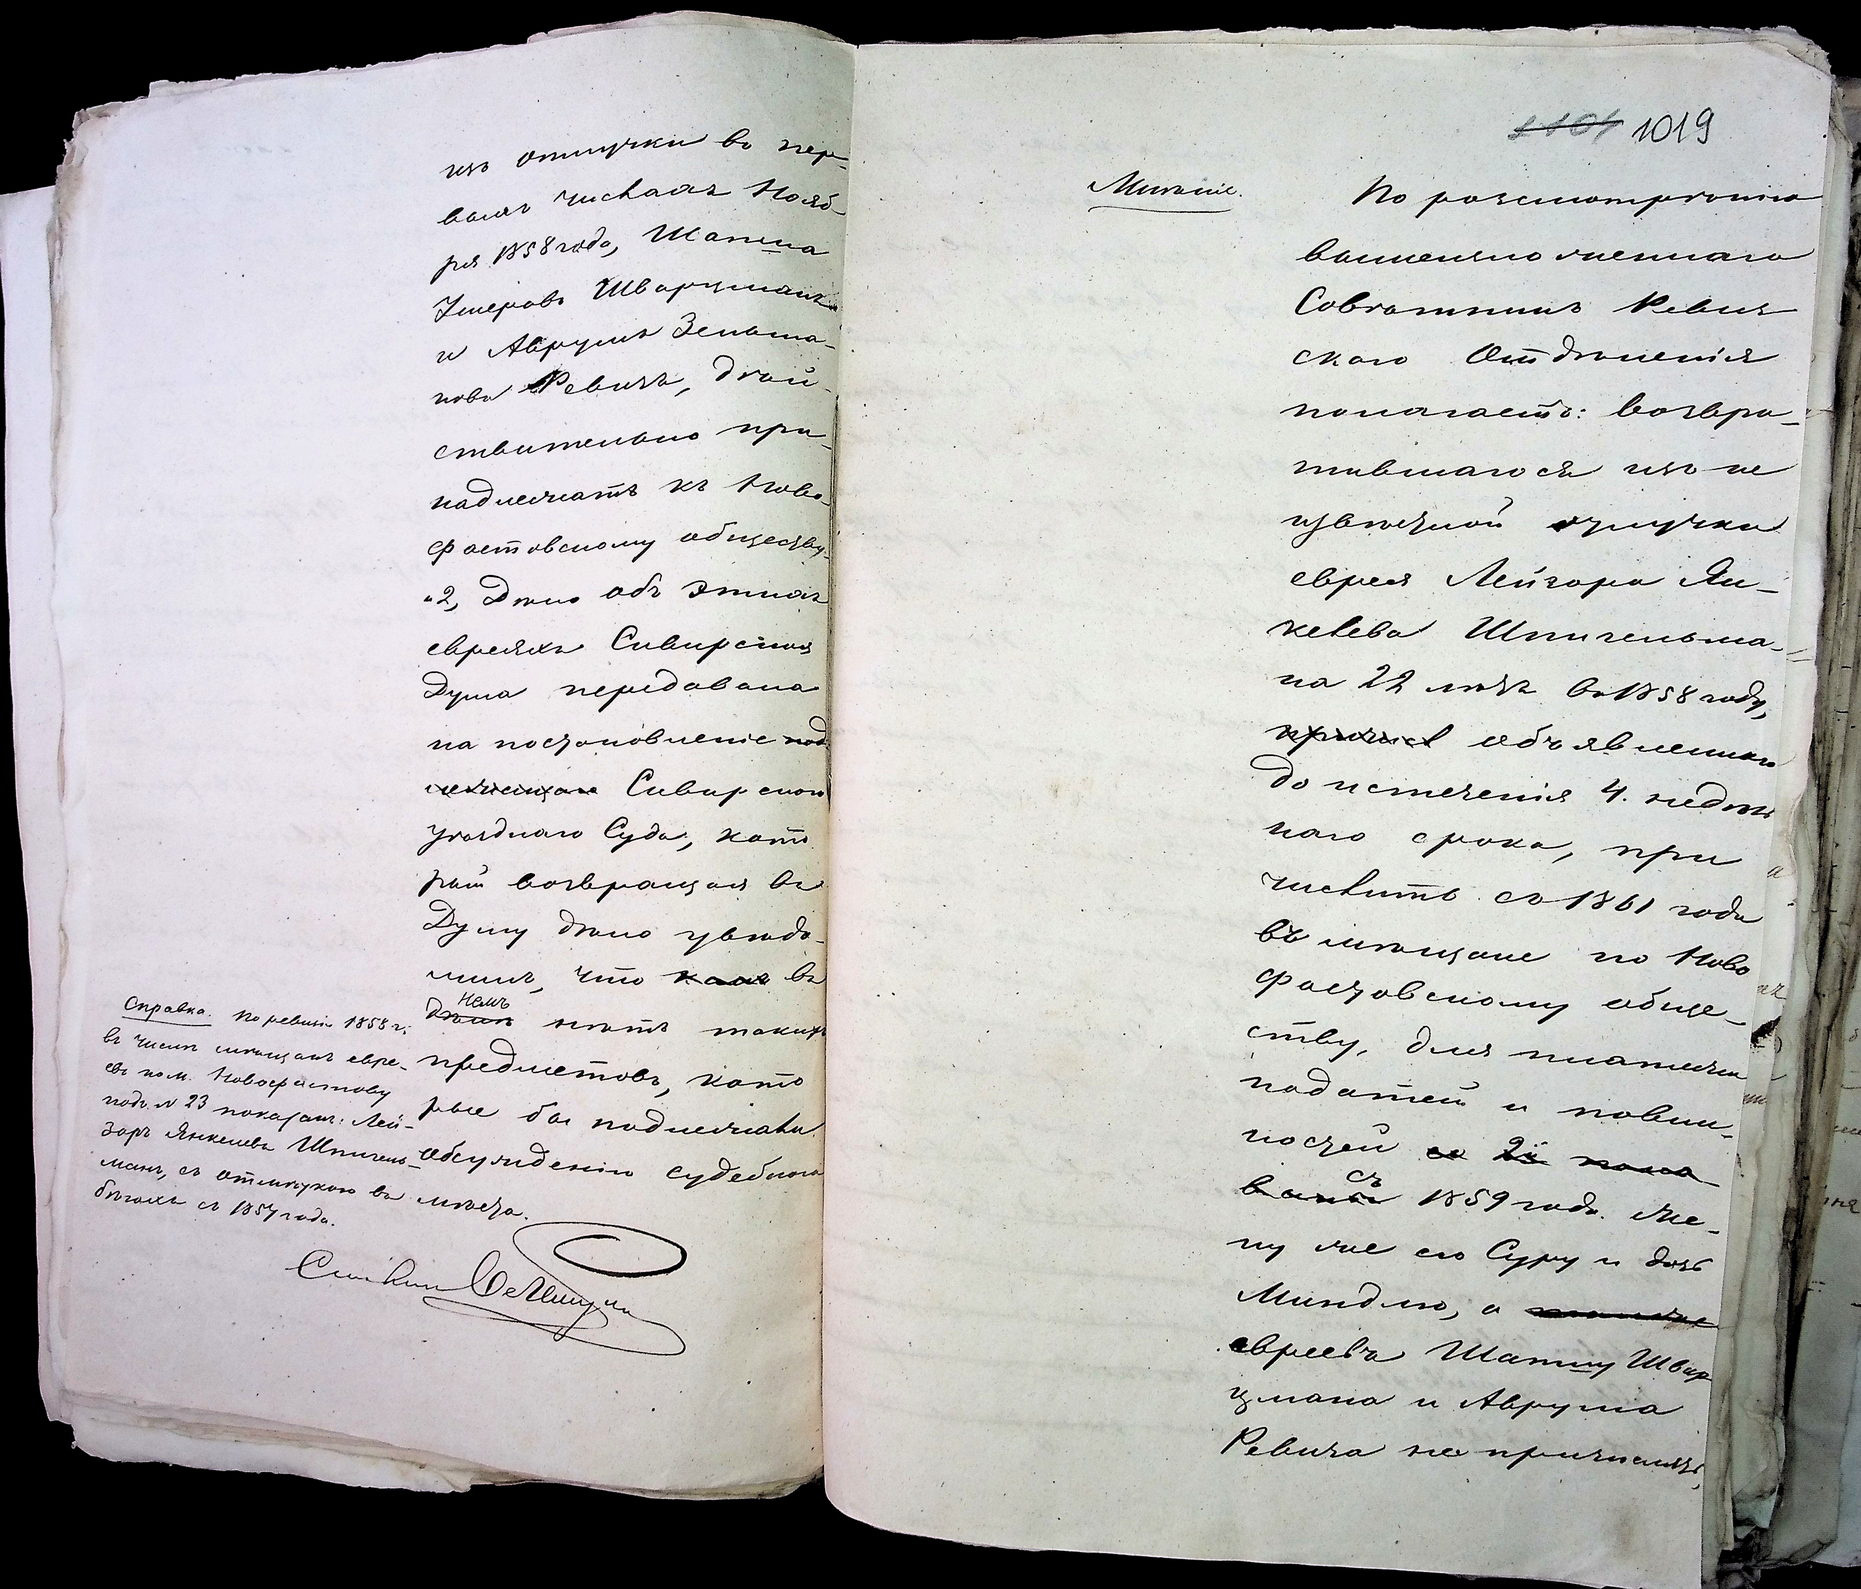 изъ отлучки въ пер-
выхъ числахъ Нояб-
ря 1858 года, Шапша
Умеровъ Шварцманъ
и Аврумъ Зельма-
новъ Ревичъ, дѣй-
ствительно при-
надлежатъ къ Ново-
фастовскому обществу.
"2, Дѣло объ этихъ
евреяхъ Сквирская
Дума передавала
на постановленіе под
лежащаго Сквирскаго
уѣзднаго Суда, кото
рый возвращая въ
Думу дѣло увѣдо-
милъ, что въ
немъ
дѣлѣ нѣтъ такихъ
предметовъ, кото
рые бы подлежали
обсужденію судебнаго
мѣста.
Справка. По ревизіи 1858 г.
въ числѣ мѣщанъ евре-
евъ по м. Новофастову
подъ № 23 показанъ: Лей-
зоръ Янкелевъ Шпигель-
манъ, съ отмѣткою въ
бѣгахъ съ 1857 года.
1101 1019
Мнѣніе.
По разсмотрѣніи
вышеизложеннаго
Совѣтникъ Ревиз
скаго Отдѣленія
полагаетъ: возвра-
тившагося изъ не
извѣстной отлучки
еврея Лейзора Ян-
келева Шпигельма-
на 22 лѣтъ въ 1858 году,
причисл объявленнаго
до истеченія 4. недѣль
наго срока, при
числить съ 1861 года
въ мѣщане по Ново
фастовскому обще-
ству, для платежа
податей и повин-
ностей со 2й поло
съ
вины 1859 года. Же-
ну же его Суру и дочь
Миндлю, а также
евреевъ Шапшу Швар
цмана и Аврума
Ревича не причислять,